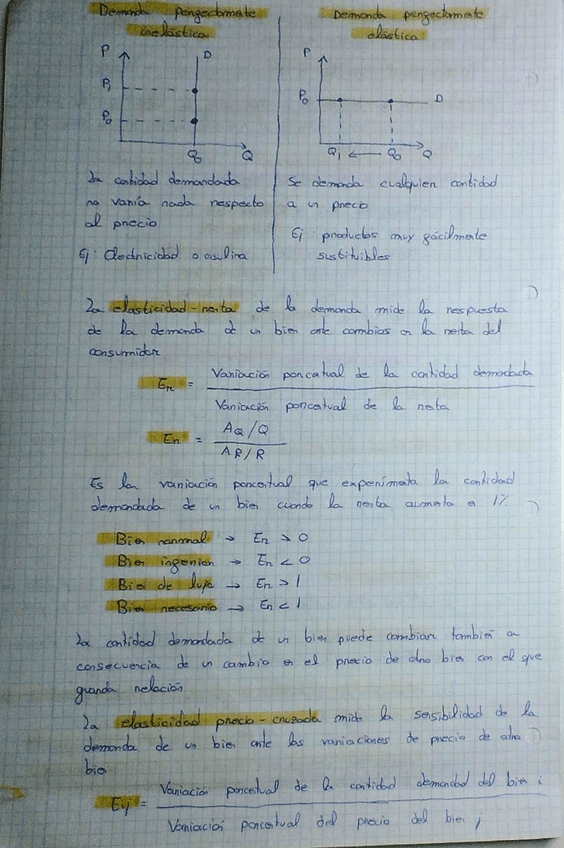 Demanda perfectamente
inelástica
P
D
P₁
P₀
Q₀
Q
La cantidad demandada
no varía nada respecto
al precio
Ej: Electricidad o insulina
Demanda perfectamente
elástica
P
P₀
D
Q₁ ← Q₀ Q
Se demanda cualquier cantidad
a un precio
Ej: productos muy fácilmente
sustituibles
La elasticidad-renta de la demanda mide la respuesta
de la demanda de un bien ante cambios en la renta del
consumidor
Er = Variación porcentual de la cantidad demandada
Variación porcentual de la renta
Er = ΔQ/Q
ΔR/R
Es la variación porcentual que experimenta la cantidad
demandada de un bien cuando la renta aumenta en 1%
Bien normal → Er > 0
Bien inferior → Er < 0
Bien de lujo → Er > 1
Bien necesario → Er < 1
La cantidad demandada de un bien puede cambiar también a
consecuencia de un cambio en el precio de otro bien con el que
guarda relación
La elasticidad precio-cruzada mide la sensibilidad de la
demanda de un bien ante las variaciones de precio de otro
bien
Eij = Variación porcentual de la cantidad demandad del bien i
Variación porcentual del precio del bien j